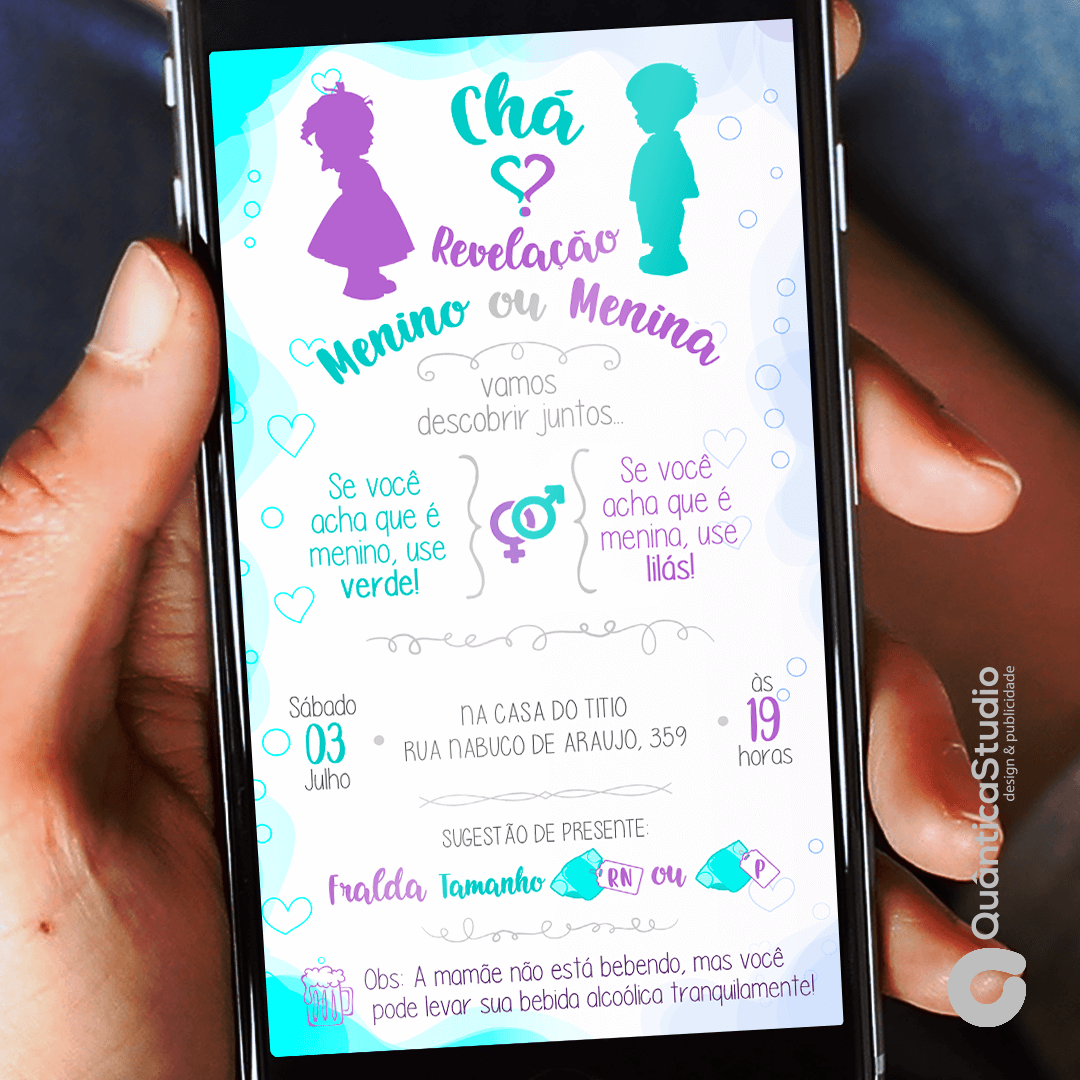 Chá
Revelação
Menino ou Menina
vamos
descobrir juntos...
Se você
acha que é
menino, use
verde!
Se você
acha que é
menina, use
lilás!
Sábado
03
Julho
NA CASA DO TITIO
RUA NABUCO DE ARAUJO, 359
às
19
horas
SUGESTÃO DE PRESENTE:
Fralda Tamanho RN ou P
Obs: A mamãe não está bebendo, mas você
pode levar sua bebida alcoólica tranquilamente!
QuânticaStudio
design & publicidade